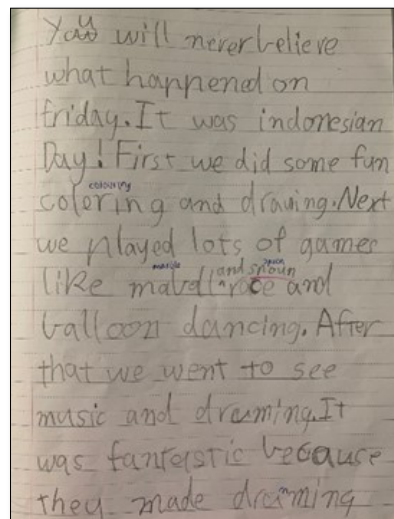 You will never believe
what happened on
friday. It was indonesian
Day! First we did some fun
colouring
colering and drawing. Next
we played lots of games
marble spoon
like mabdl and snoun race and
balloon dancing. After
that we went to see
music and druming. It
was fantastic because
they made dramming